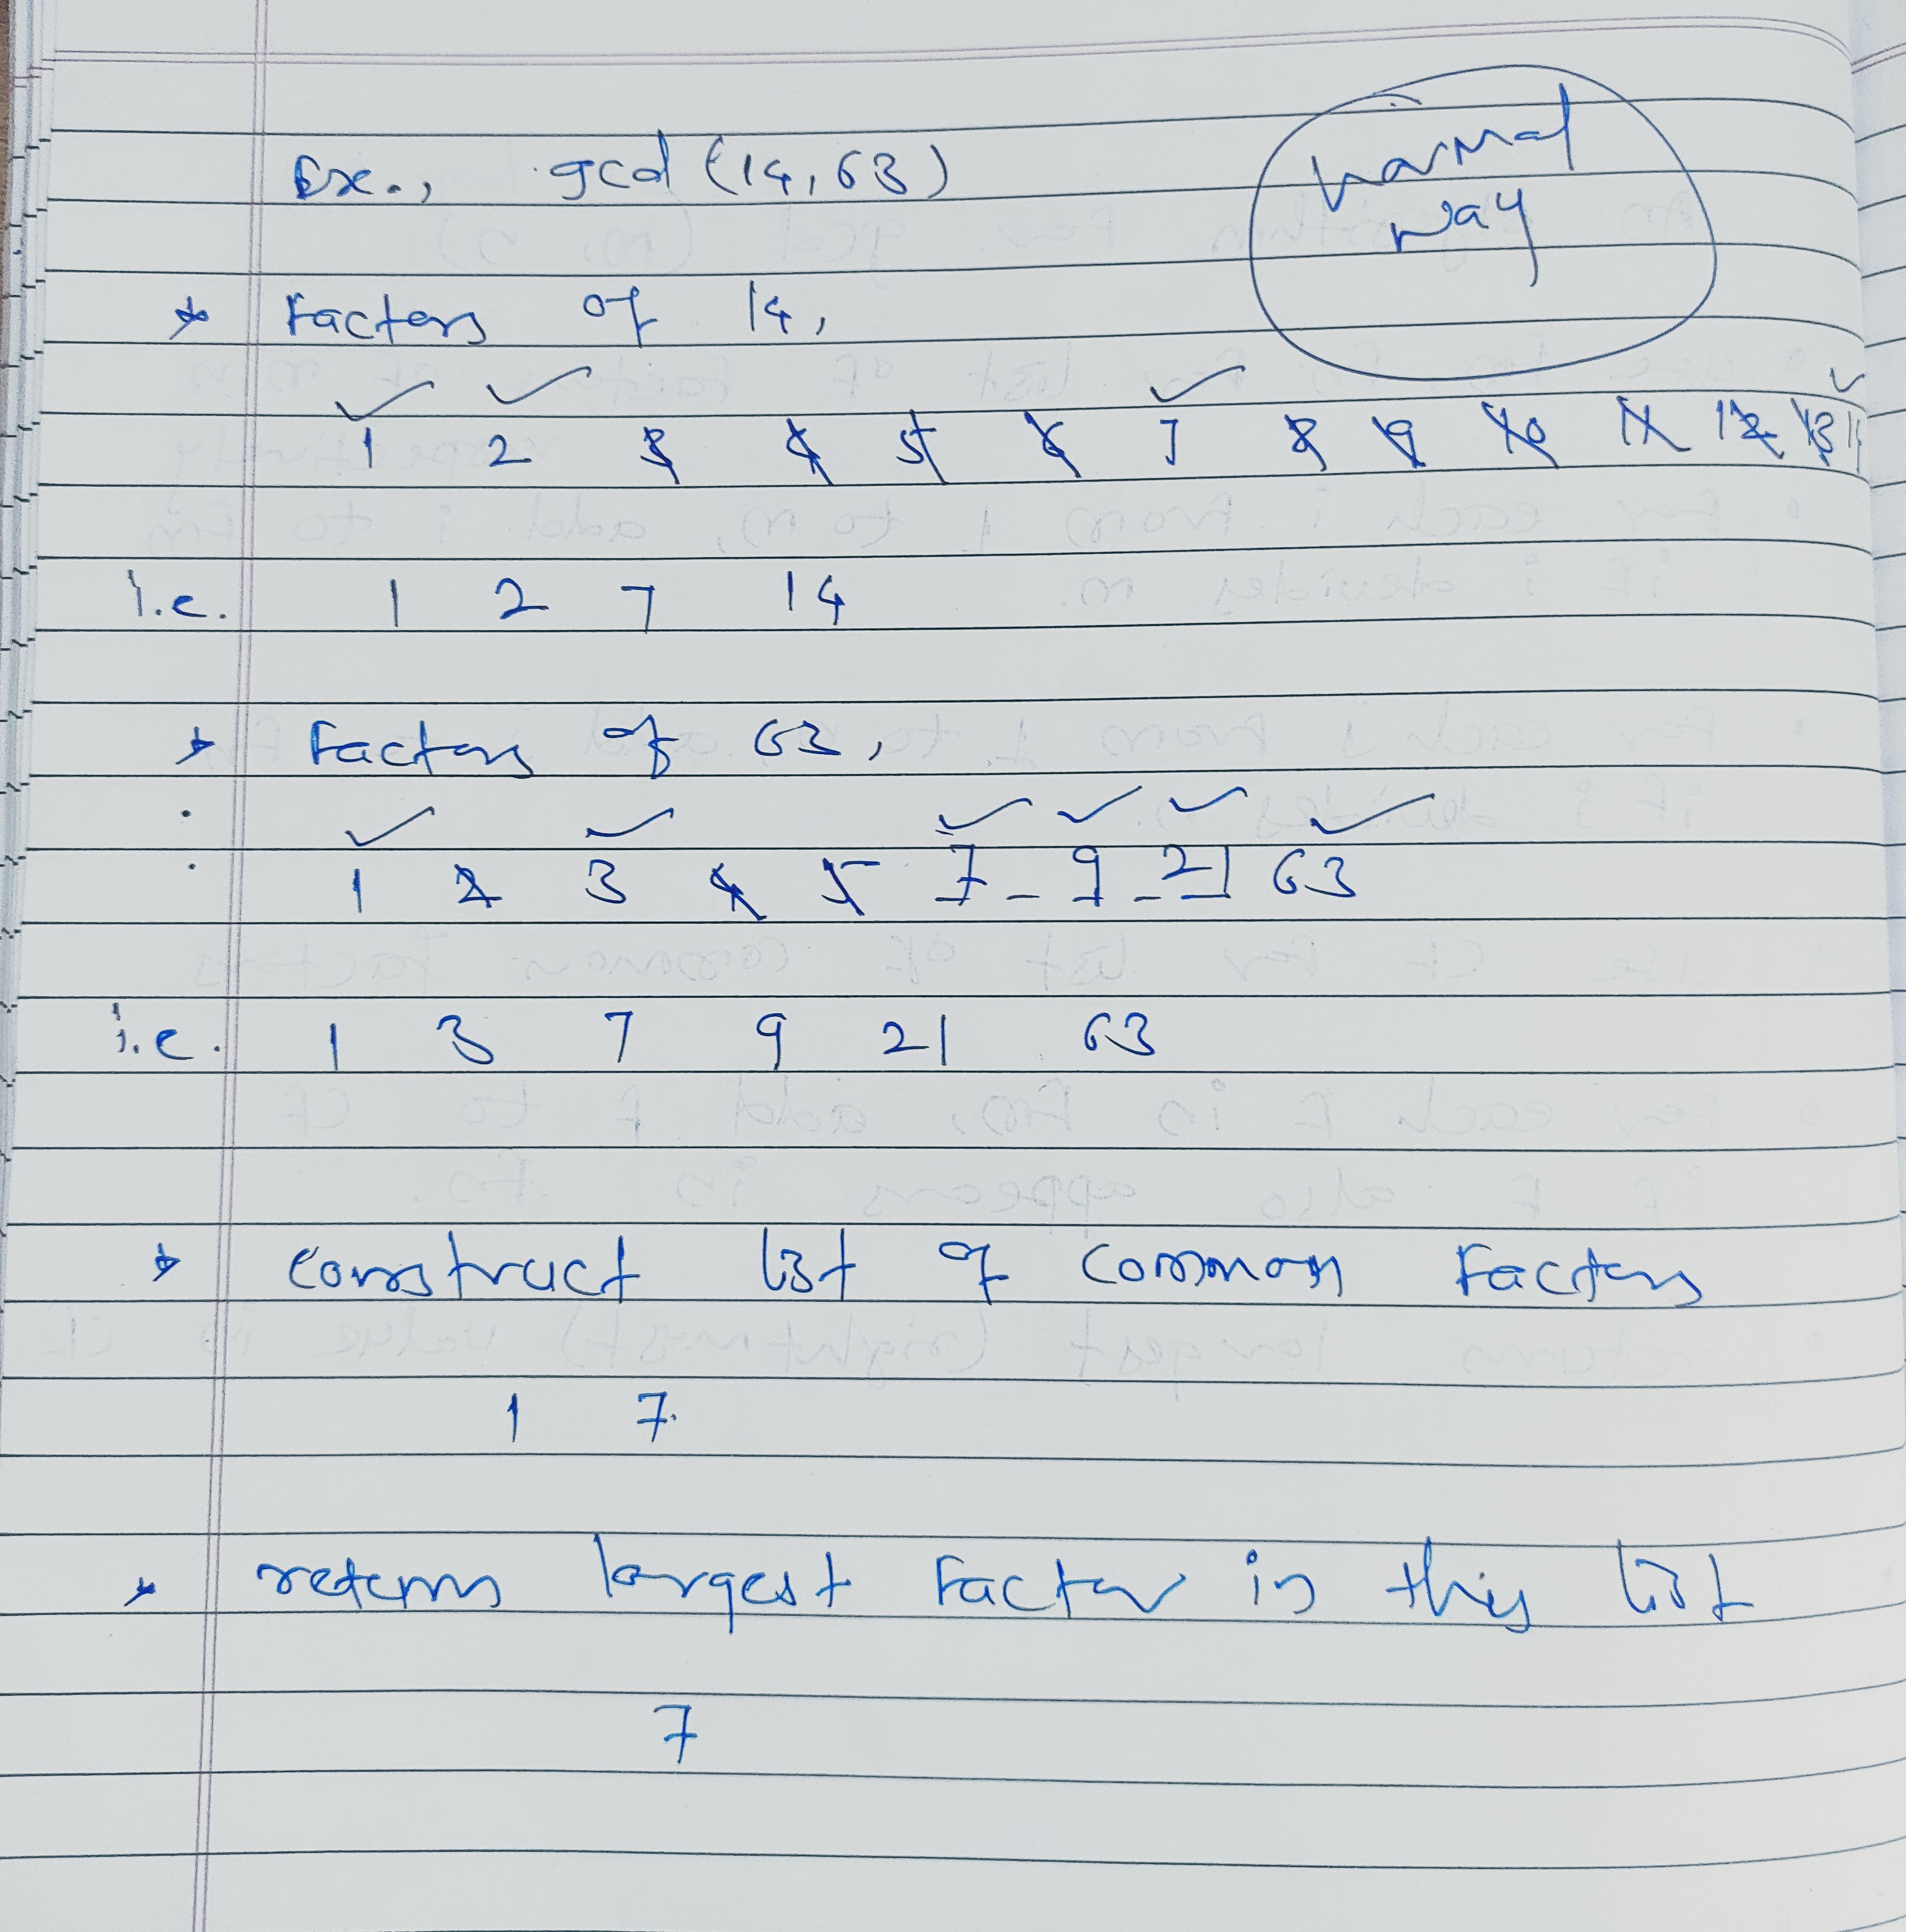 Ex., gcd (14, 63)
normal
way
* Factors of 14,
1 2 3 4 5 6 7 8 9 10 11 12 13
i.e. 1 2 7 14
* Factors of 63,
1 2 3 4 5 7 - 9 - 21 63
i.e. 1 3 7 9 21 63
* construct list of common Factors
1 7
* return largest Factor in this list
7